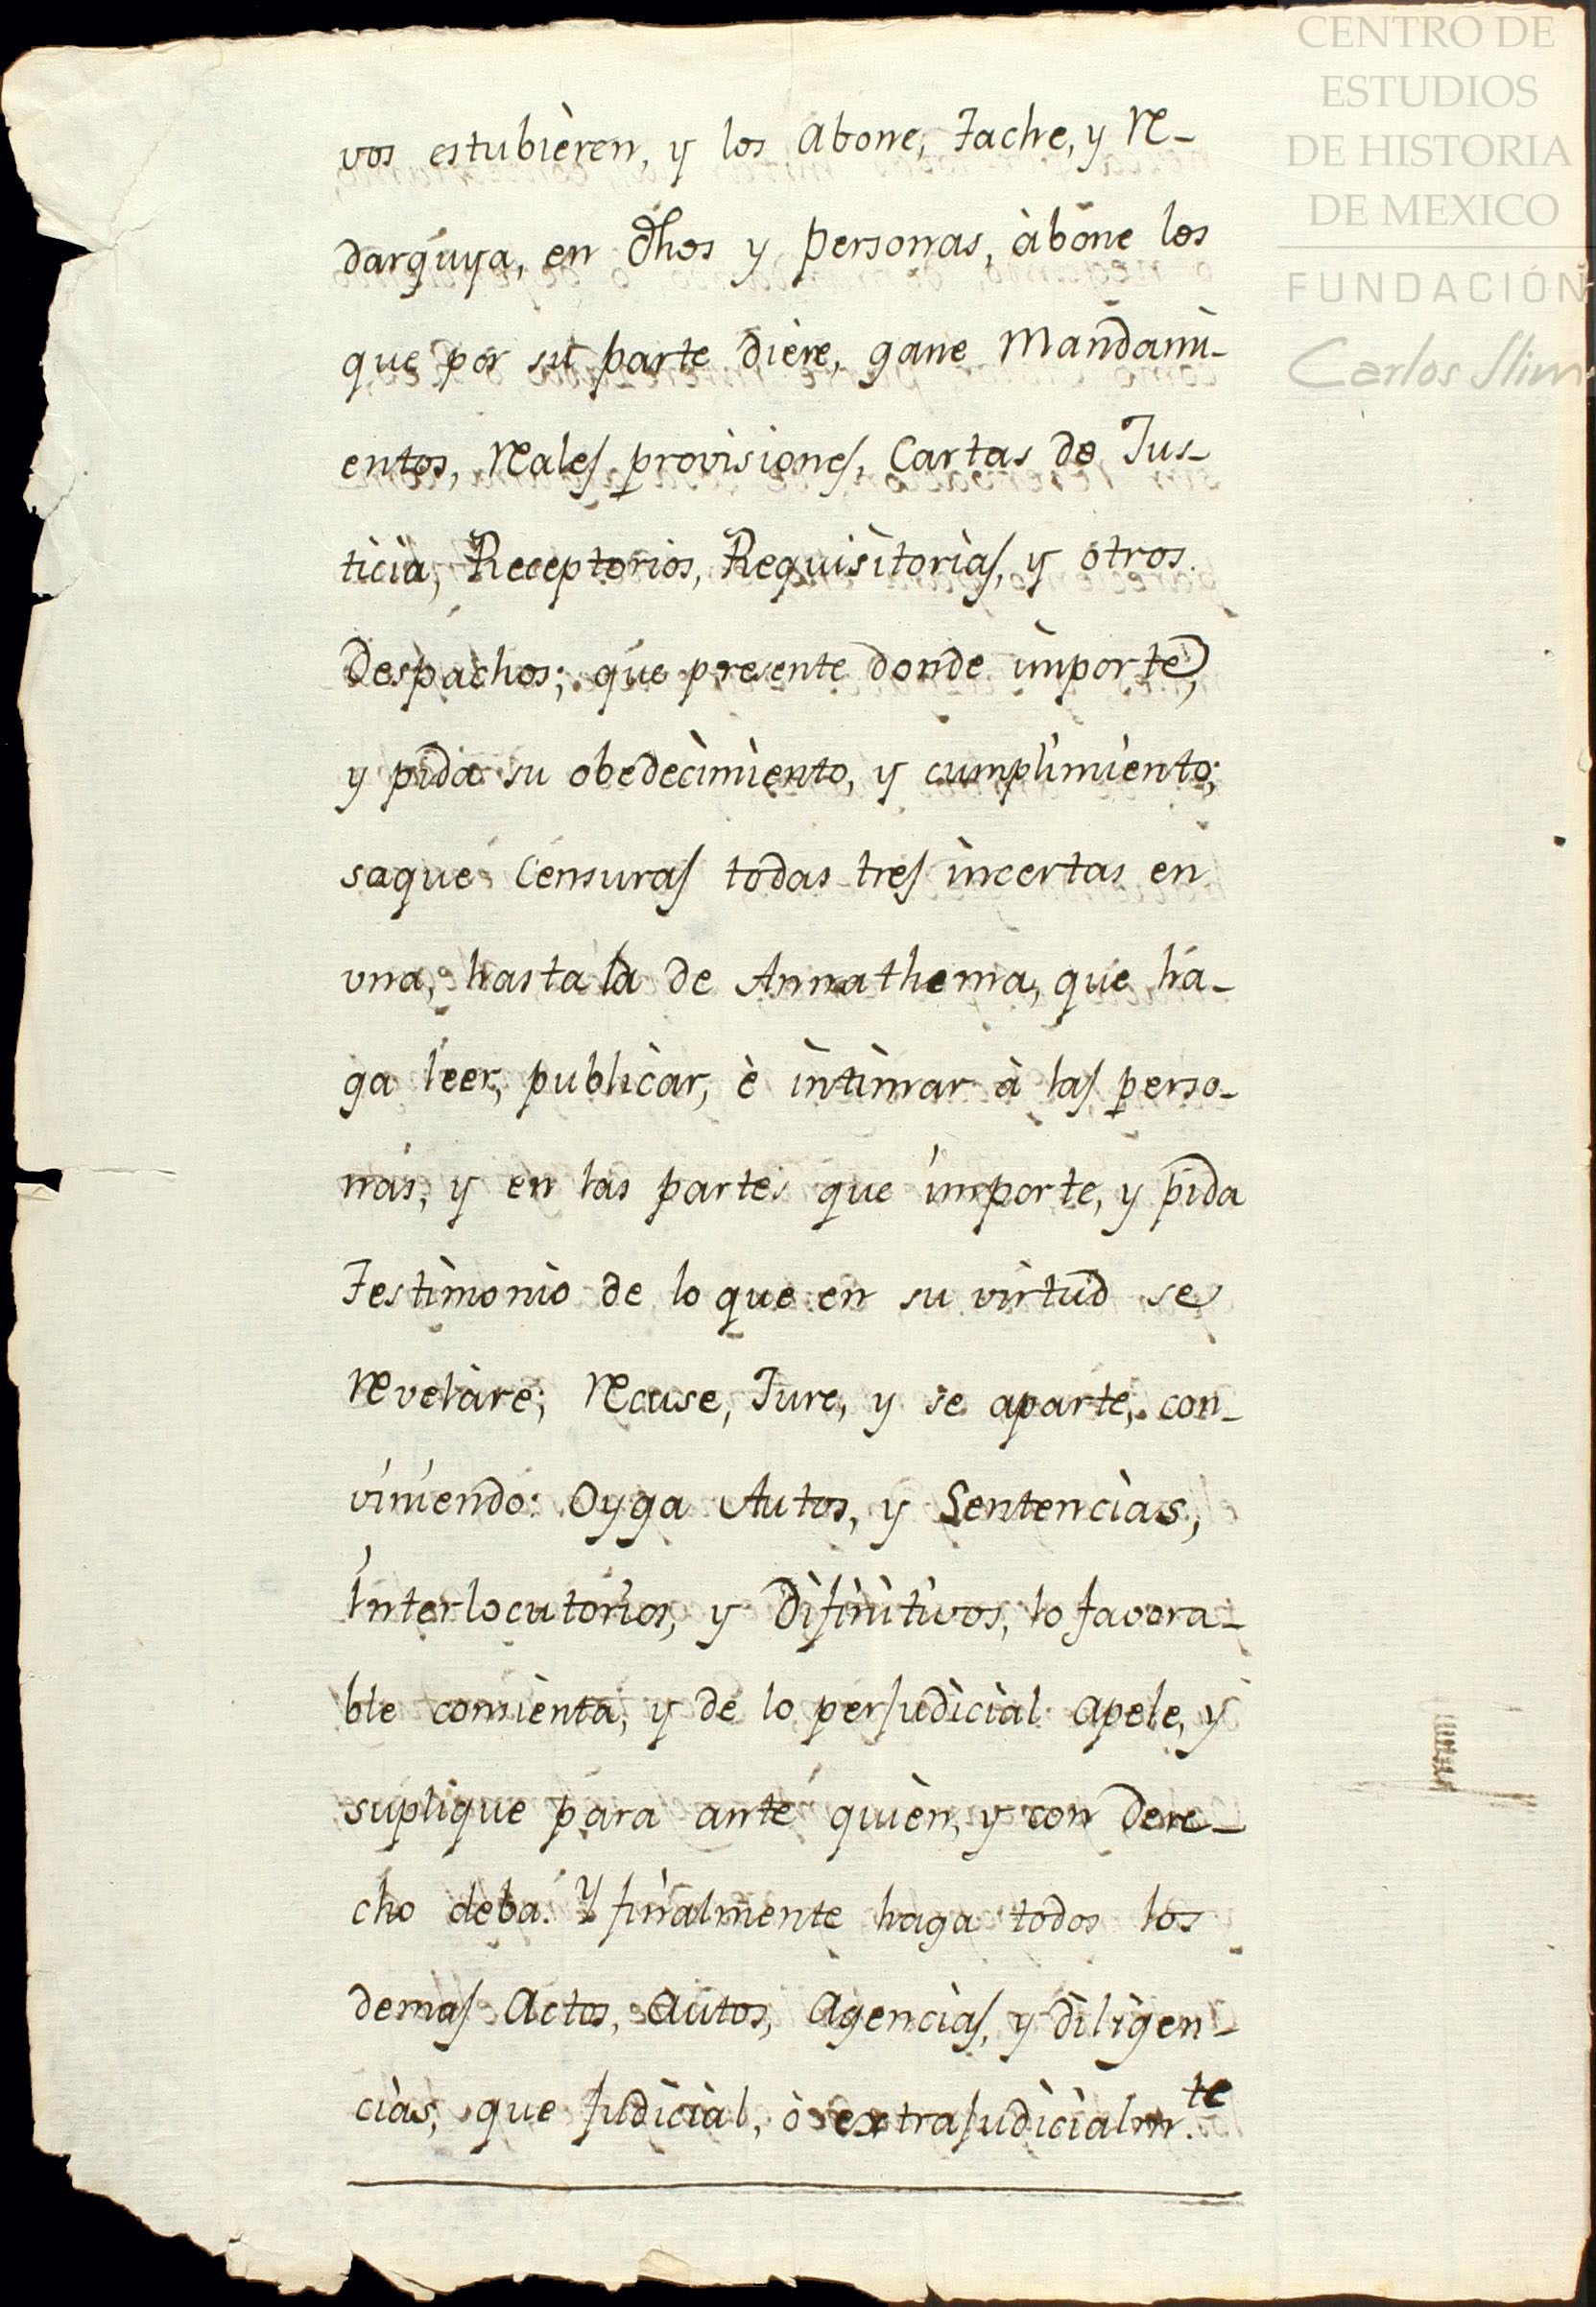 CENTRO DE
ESTUDIOS
DE HISTORIA
DE MEXICO
FUNDACIÓN
Carlos Slim
vos estubièren, y los abone, Tache, y Re-
darguya, en dhos y personas, àbone los
que por su parte dière, gane Mandami-
entos, Reales provisiones, Cartas de Jus-
ticia, Receptorios, Requisitorias, y otros
Despachos; que presente donde importe,
y pida su obedecimiento, y cumplimiento;
saque Censuras todas tres incertas en
vna, hasta la de Annathema, que ha-
ga leer, publicar, è intimar à las perso-
nas, y en las partes que importe, y pida
Testimonio de lo que en su virtud se
Revelàre; Recuse, Jure, y se aparte, con-
viniendo: Oyga Autos, y Sentencias,
Interlocutorios, y Difinitivos, lo favora-
ble consienta, y de lo perjudicial apele, y
suplique para ante quièn, y con dere-
cho deba. Y finalmente haga todos los
demas Actos, Autos, Agencias, y diligen-
cias, que judicial, ò extrajudicialm.te